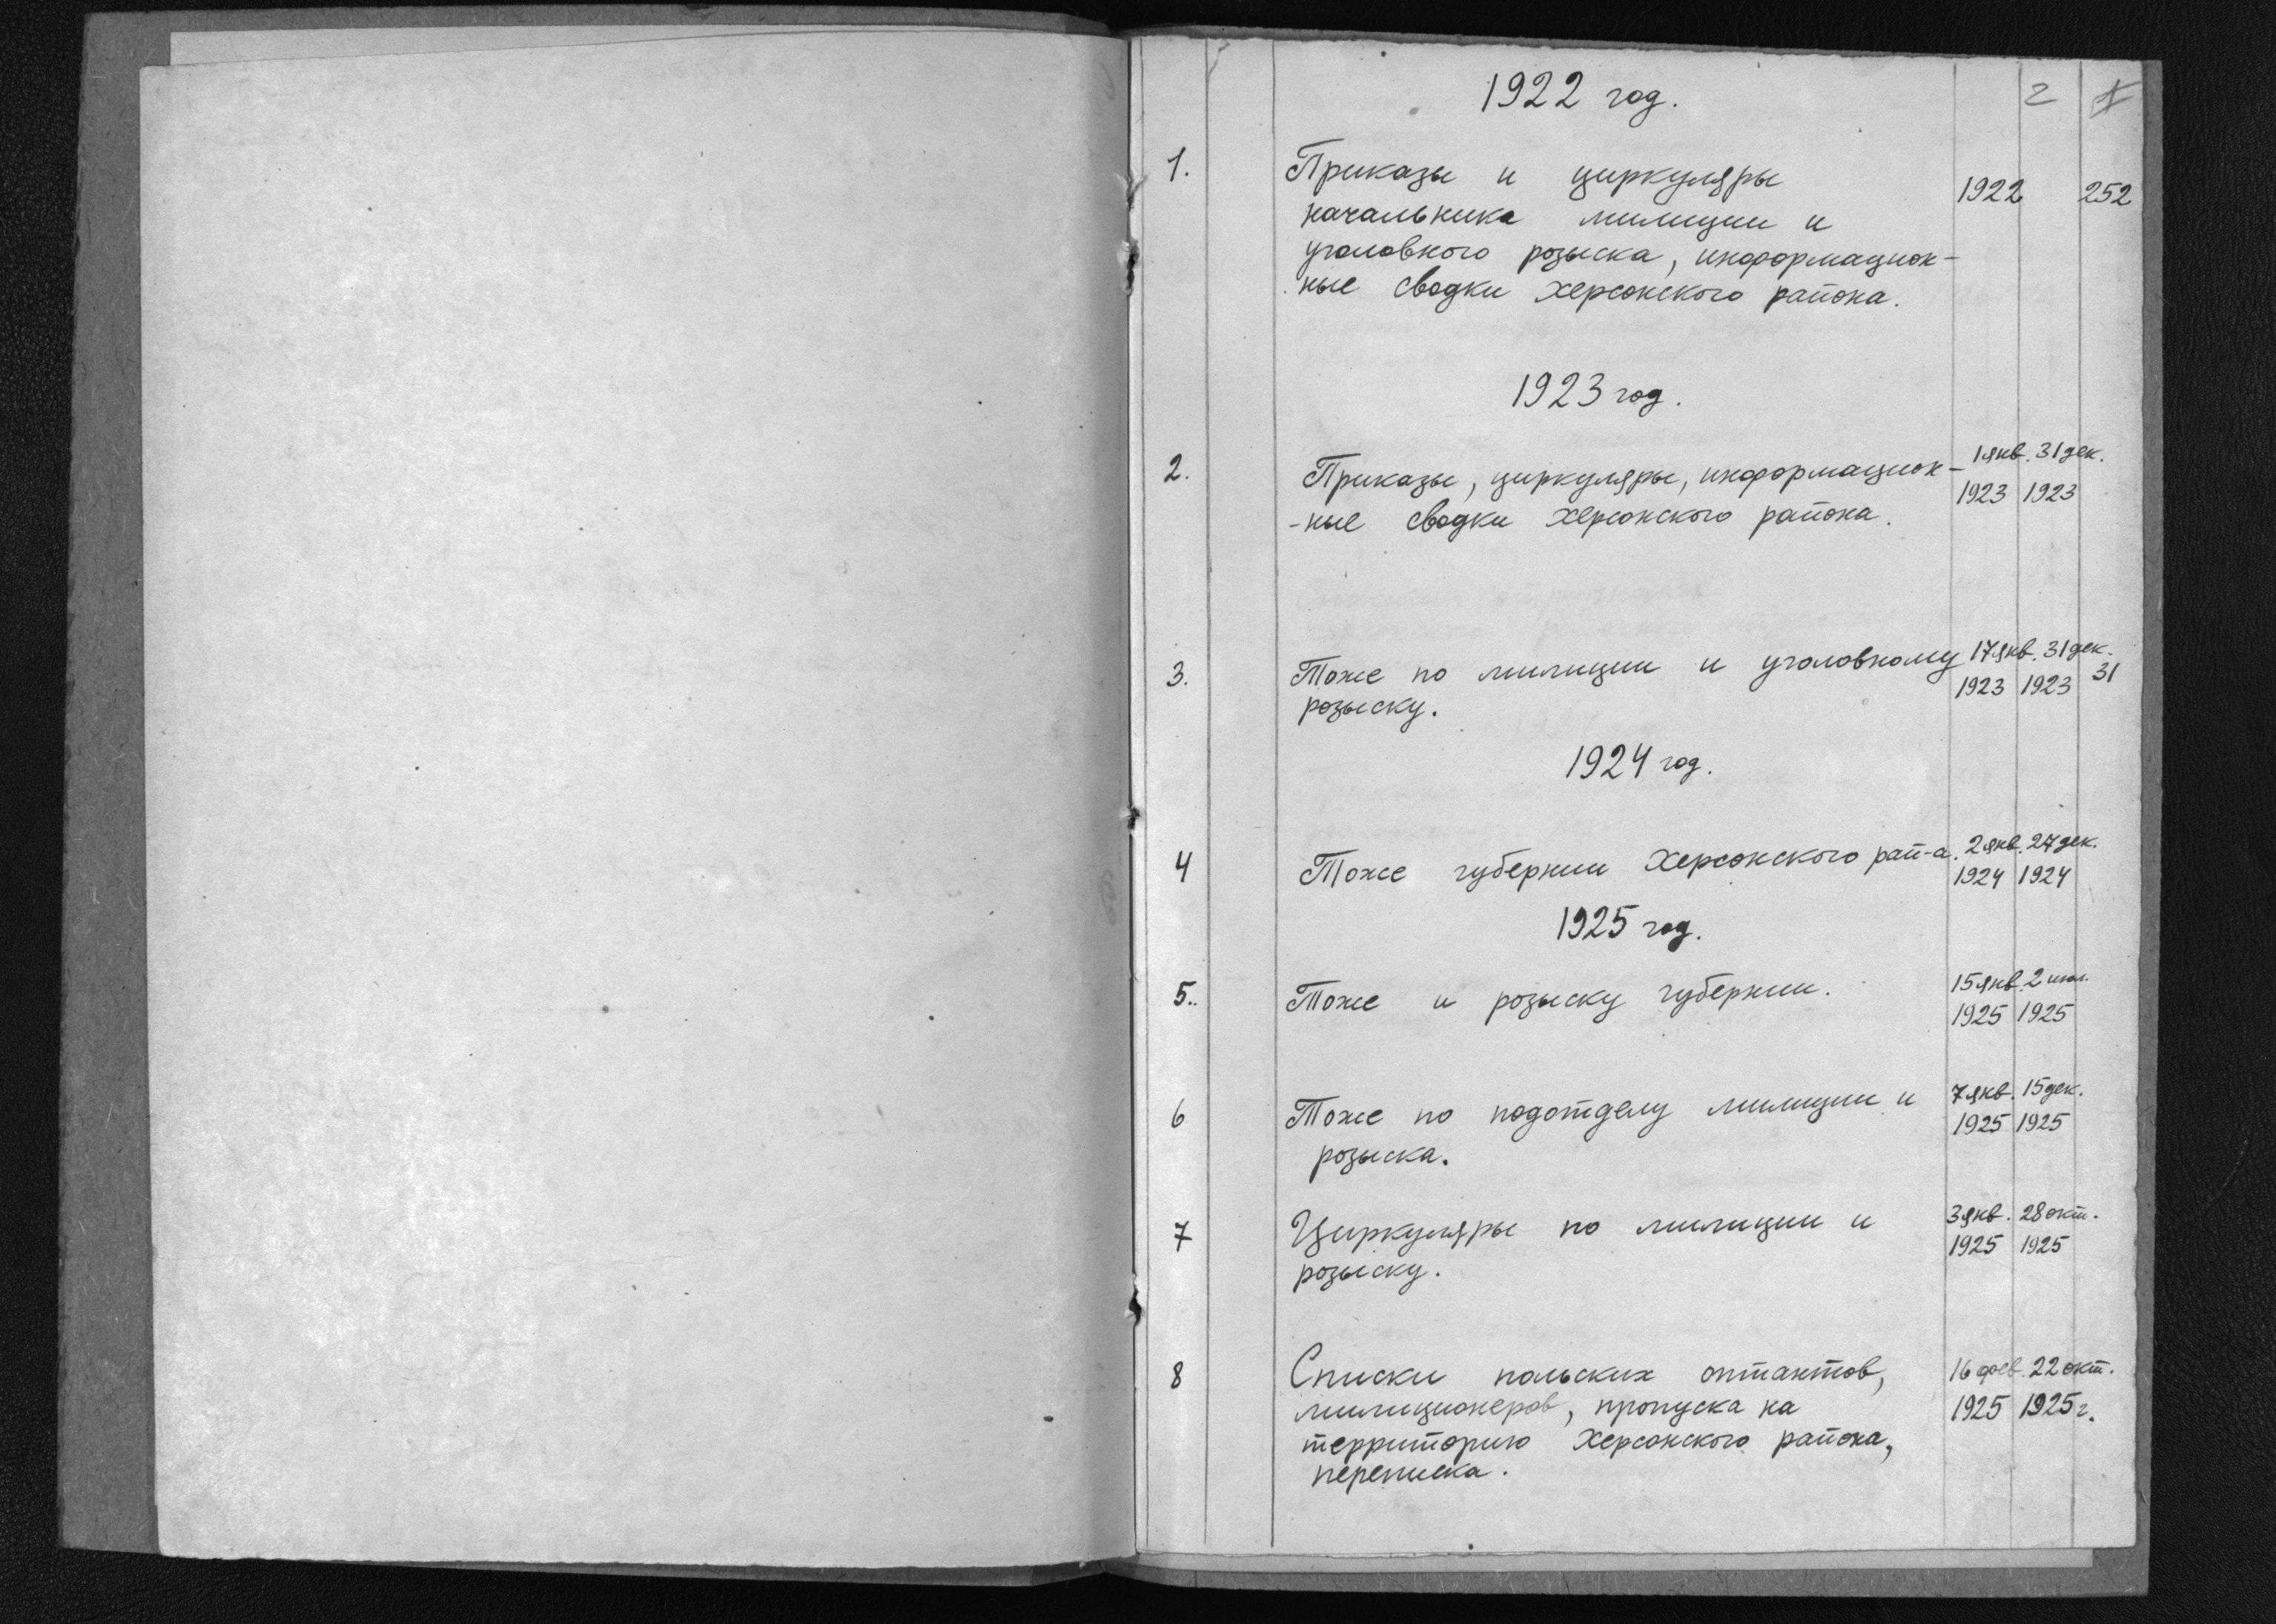 1922 год.
2
1.
Приказы и циркуляры
начальника милиции и
уголовного розыска, информацион-
ные сводки Херсонского района.
1922
252
1923 год.
2.
Приказы, циркуляры, информацион-
-ные сводки Херсонского района.
1 янв. 31 дек.
1923 1923
3.
Тоже по милиции и уголовному
розыску.
17 янв. 31 дек.
1923 1923
31
1924 год.
4
Тоже губернии Херсонского рай-а.
2 янв. 27 дек.
1924 1924
1925 год.
5..
Тоже и розыску губернии.
15 янв. 2
1925 1925
6
Тоже по подотделу милиции и
розыска.
7 янв. 15 дек.
1925 1925
7
Циркуляры по милиции и
розыску.
3 янв. 28 окт.
1925 1925
8
Списки польских оптантов,
милиционеров, пропуска на
территорию Херсонского района,
переписка.
16 фев. 22 окт.
1925 1925 г.